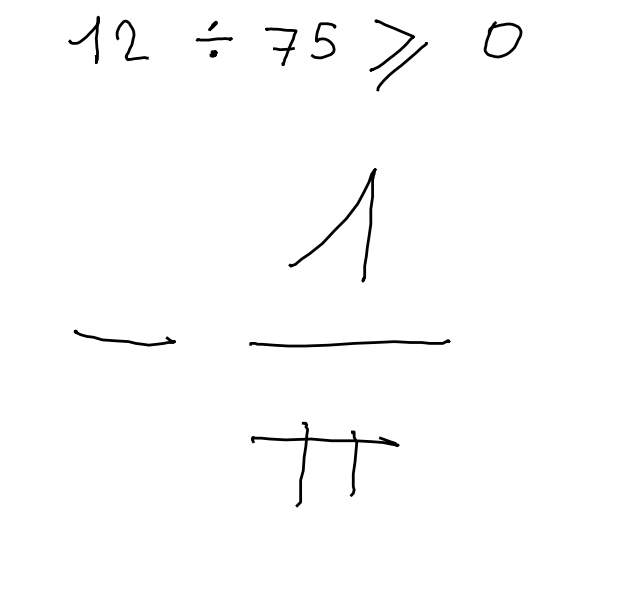 12 ÷ 75 ⩾ 0
- \frac{1}{π}